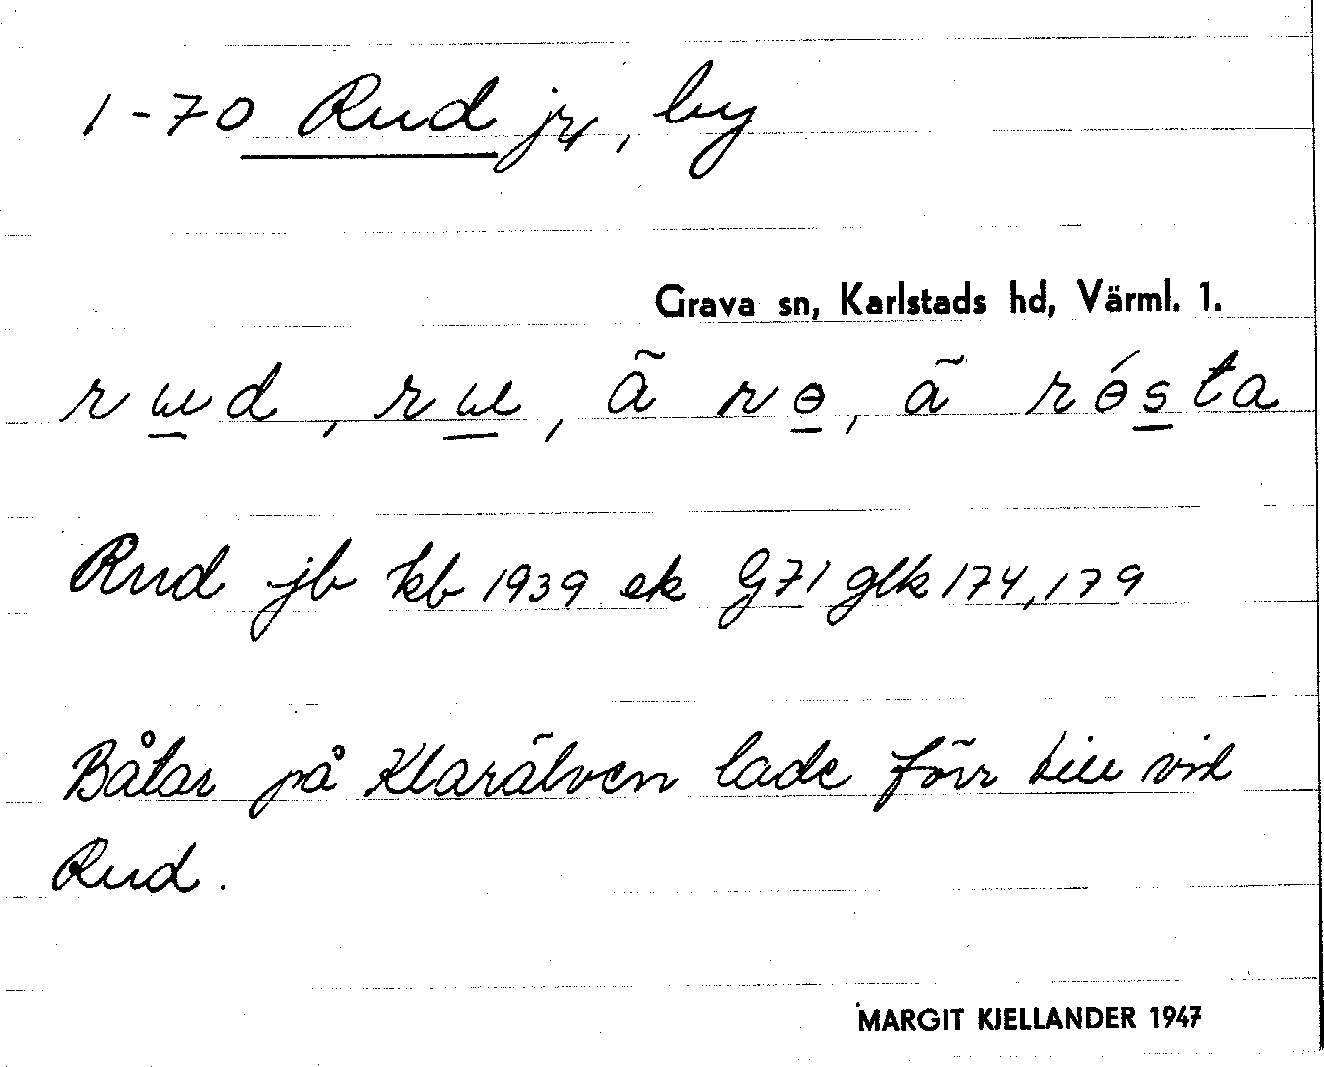 1-70 Rud jr, by
Grava sn, Karlstads hd, Värml. 1.
rɯd, rɯ, ã rɵ, ã rɵ́sta
Rud jb kb 1939 ek G71 glk 174, 179
Båtar på Klarälven lade förr till vid
Rud.
MARGIT KJELLANDER 1947